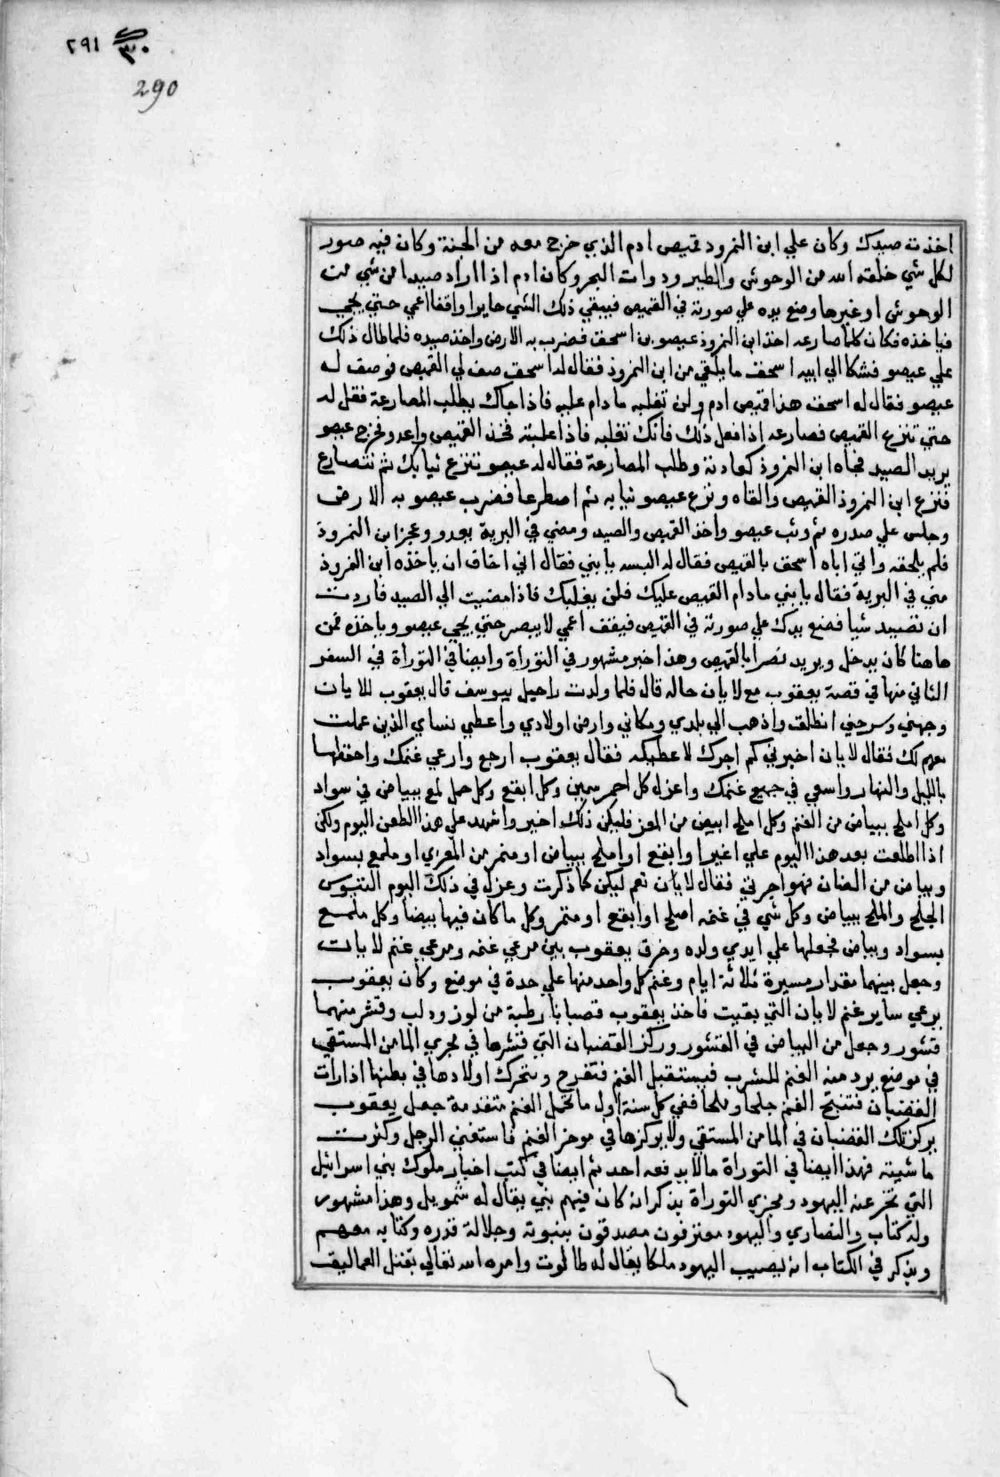 ٢٩١ ٣٠
290
اخذت صيدك وكان علي ابن النمرود قميص ادم الذي خرج معه من الجنة وكان فيه صور
لكل شي خلقه الله من الوحوش والطير ودوات البحر وكان ادم اذا اراد صيدا من شي من
الوحوش او غيرها وضع يده علي صورته في القميص فيبقي ذلك الشي حايرا واقفا اعمي حتي يجي
فياخذه فكان كلما صارعه اخذ ابن النمروذ عيصو بن اسحق فضرب به الارض واخذ صيده فلما طال ذلك
علي عيصو فشكا الي ابيه اسحق ما يلقي من ابن النمروذ فقال له اسحق صف لي القميص فوصف له
عيصو فقال له اسحق هذا قميص ادم ولن تغلبه ما دام عليه فاذا جاك يطلب المصارعة فقل له
حتي تنزع القميص فصارعه اذا فعل ذلك فانك تغلبه فاذا غلبته فخذ القميص واعدو فخرج عيصو
يريد الصيد فجاه ابن النمروذ كعادته وطلب المصارعة فقال له عيصو تنزع ثيابك ثم نتصارع
فنزع ابن النمروذ القميص والقاه ونزع عيصو ثيابه ثم اصطرعا فضرب عيصو به الارض
وجلس علي صدره ثم وثب عيصو واخذ القميص والصيد ومضي في البرية يعدو وعجز ابن النمروذ
فلم يلحقه واتي اباه اسحق بالقميص فقال له البسه يا بني فقال اني اخاف ان ياخذه ابن النمروذ
مني في البرية فقال يا بني ما دام القميص عليك فلن يغلبك فاذا مضيت الي الصيد فاردت
ان تصيد شيا فضع يدك علي صورته في القميص فيقف اعمي لا يبصر حتي يجي عيصو وياخذه فمن
هاهنا كان يدخل ويريد نصرا بالقميص وهذا خبر مشهور في التوراة وايضا في التوراة في السفر
الثاني منها في قصة يعقوب مع لابان خاله قال فلما ولدت راحيل بيوسف قال يعقوب للابان
وجهني وسرحني انطلق واذهب الي بلدي ومكاني وارض اولادي واعطي نساي الذين عملت
معهم لك فقال لابان اخبرني كم اجرك لاعطيكه فقال يعقوب ارجع وارعي غنمك واحفظها
بالليل والنهار واسعي في جميع غنمك واعزل كل احمر سمين وكل ابقع وكل حمل لمع ببياض في سواد
وكل املح ببياض من الغنم وكل املح ابيض من المعز فليكن ذلك اخير واشهد علي هذا الطعن اليوم ولكن
اذا اطلعت بعد هذا اليوم علي اغبرا وابقع او املح ببياض او منمر من المعزي او ملمع بسواد
وبياض من الضان فهو اجرتي فقال لابان نعم ليكن كما ذكرت وعزل في ذلك اليوم التيوس
الجلح والملح ببياض وكل شي في غنمه اصلح او ابقع او منمر وكل ما كان فيها بيضا وكل ملمع
بسواد وبياض فجعلها علي ايدي ولده وفرق يعقوب بين مرعي غنمه ومرعي غنم لابان
وجعل بينهما مقدار مسيرة ثلاثة ايام وغنم كل واحد منها علي حدة في موضع وكان يعقوب
يرعي ساير غنم لابان التي بقيت فاخذ يعقوب قصبانا رطبة من لوز ودلب وقشر منهما
قشور وجعل من البياض في القشور وركز القضبان التي قشرها في مجري الما من المستقي
في موضع يرد منه الغنم للشرب فيستقبل الغنم فتفرح وتتحرك اولادها في بطنها اذا رات
القضبان فتنتج الغنم جلحا وملحا ففي كل سنة اول ما تحمل الغنم متقدمة جعل يعقوب
يركز تلك القضبان في الما من المستقي ولا يركزها في موخر الغنم فاستغني الرجل وكثرت
ماشيته فهذا ايضا في التوراة ما لا يدفعه احد ثم ايضا في كتب اخبار ملوك بني اسرائيل
التي تخبر عنه اليهود ومجزي التوراة يذكر انه كان فيهم نبي يقال له شمويل وهذا مشهور
وله كتاب والنصاري واليهود معترفون مصدقون بنبوته وجلالة قدره وكتابه معهم
ويذكر في الكتاب انه نصيب اليهود ملكا يقال له طالوت وامره الله تعالي بقتل العماليق